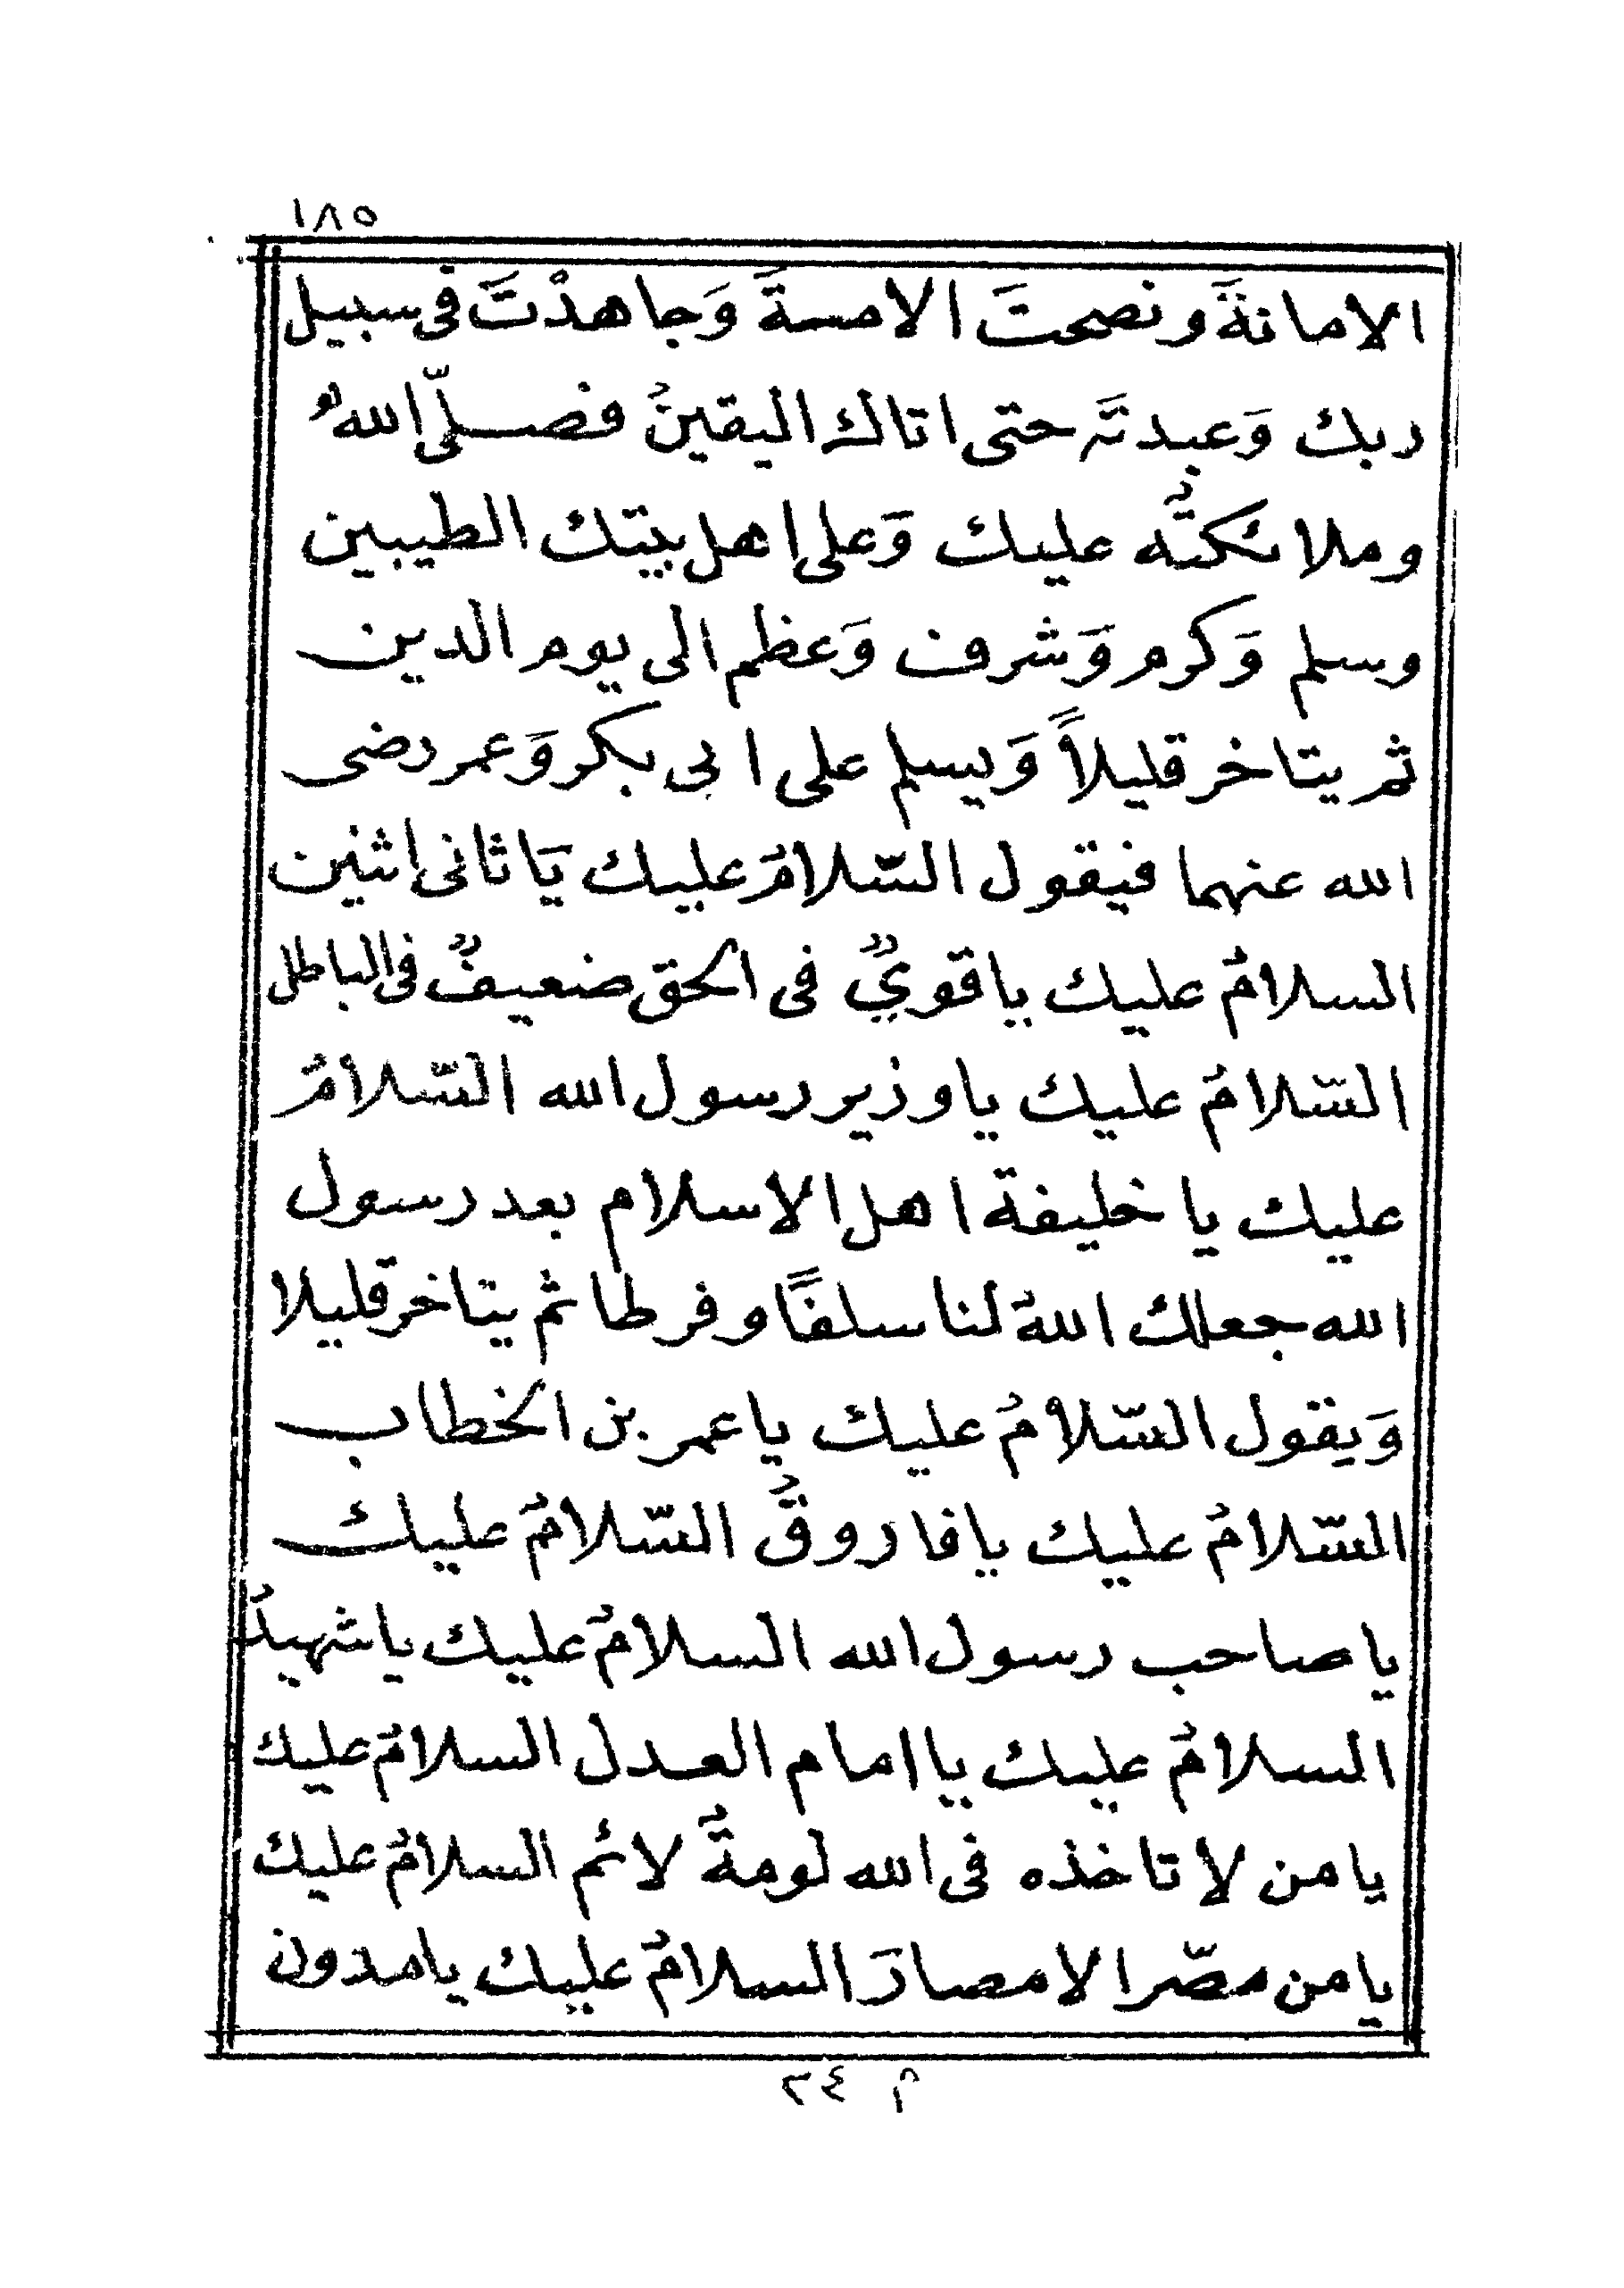 ١٨٥
الامانةَ ونصحتَ الامةَ وَجاهدْتَ فى سبيل
ربك وَعبدتَه حتى اتاك اليقينُ فصلّى اللهُ
وملائكتُه عليك وَعلى اهل بيتك الطيبين
وسلم وَكرم وَشرف وَعظم الى يوم الدين
ثم يتاخر قليلاً وَيسلم على ابى بكر وَعمر رضى
الله عنهما فيقول السّلامُ عليك يَا ثانى اثنين
السلامُ عليك يا قويٌ فى الحق ضعيفٌ فى الباطل
السّلامُ عليك يا وزير رسول الله السّلامُ
عليك يا خليفة اهل الاسلام بعد رسول
الله جعلك اللهُ لنا سلفًا وفرطا ثم يتاخر قليلا
وَيقول السّلامُ عليك يا عمر بن الخطاب
السّلامُ عليك يا فاروقُ السّلامُ عليك
يا صاحب رسول الله السلامُ عليك يا شهيدُ
السلامُ عليك يا امام العدل السلامُ عليك
يا من لا تاخذه فى الله لومةُ لائم السلامُ عليك
يا من مصّر الامصارَ السلامُ عليك يا مدون
م ٢٤